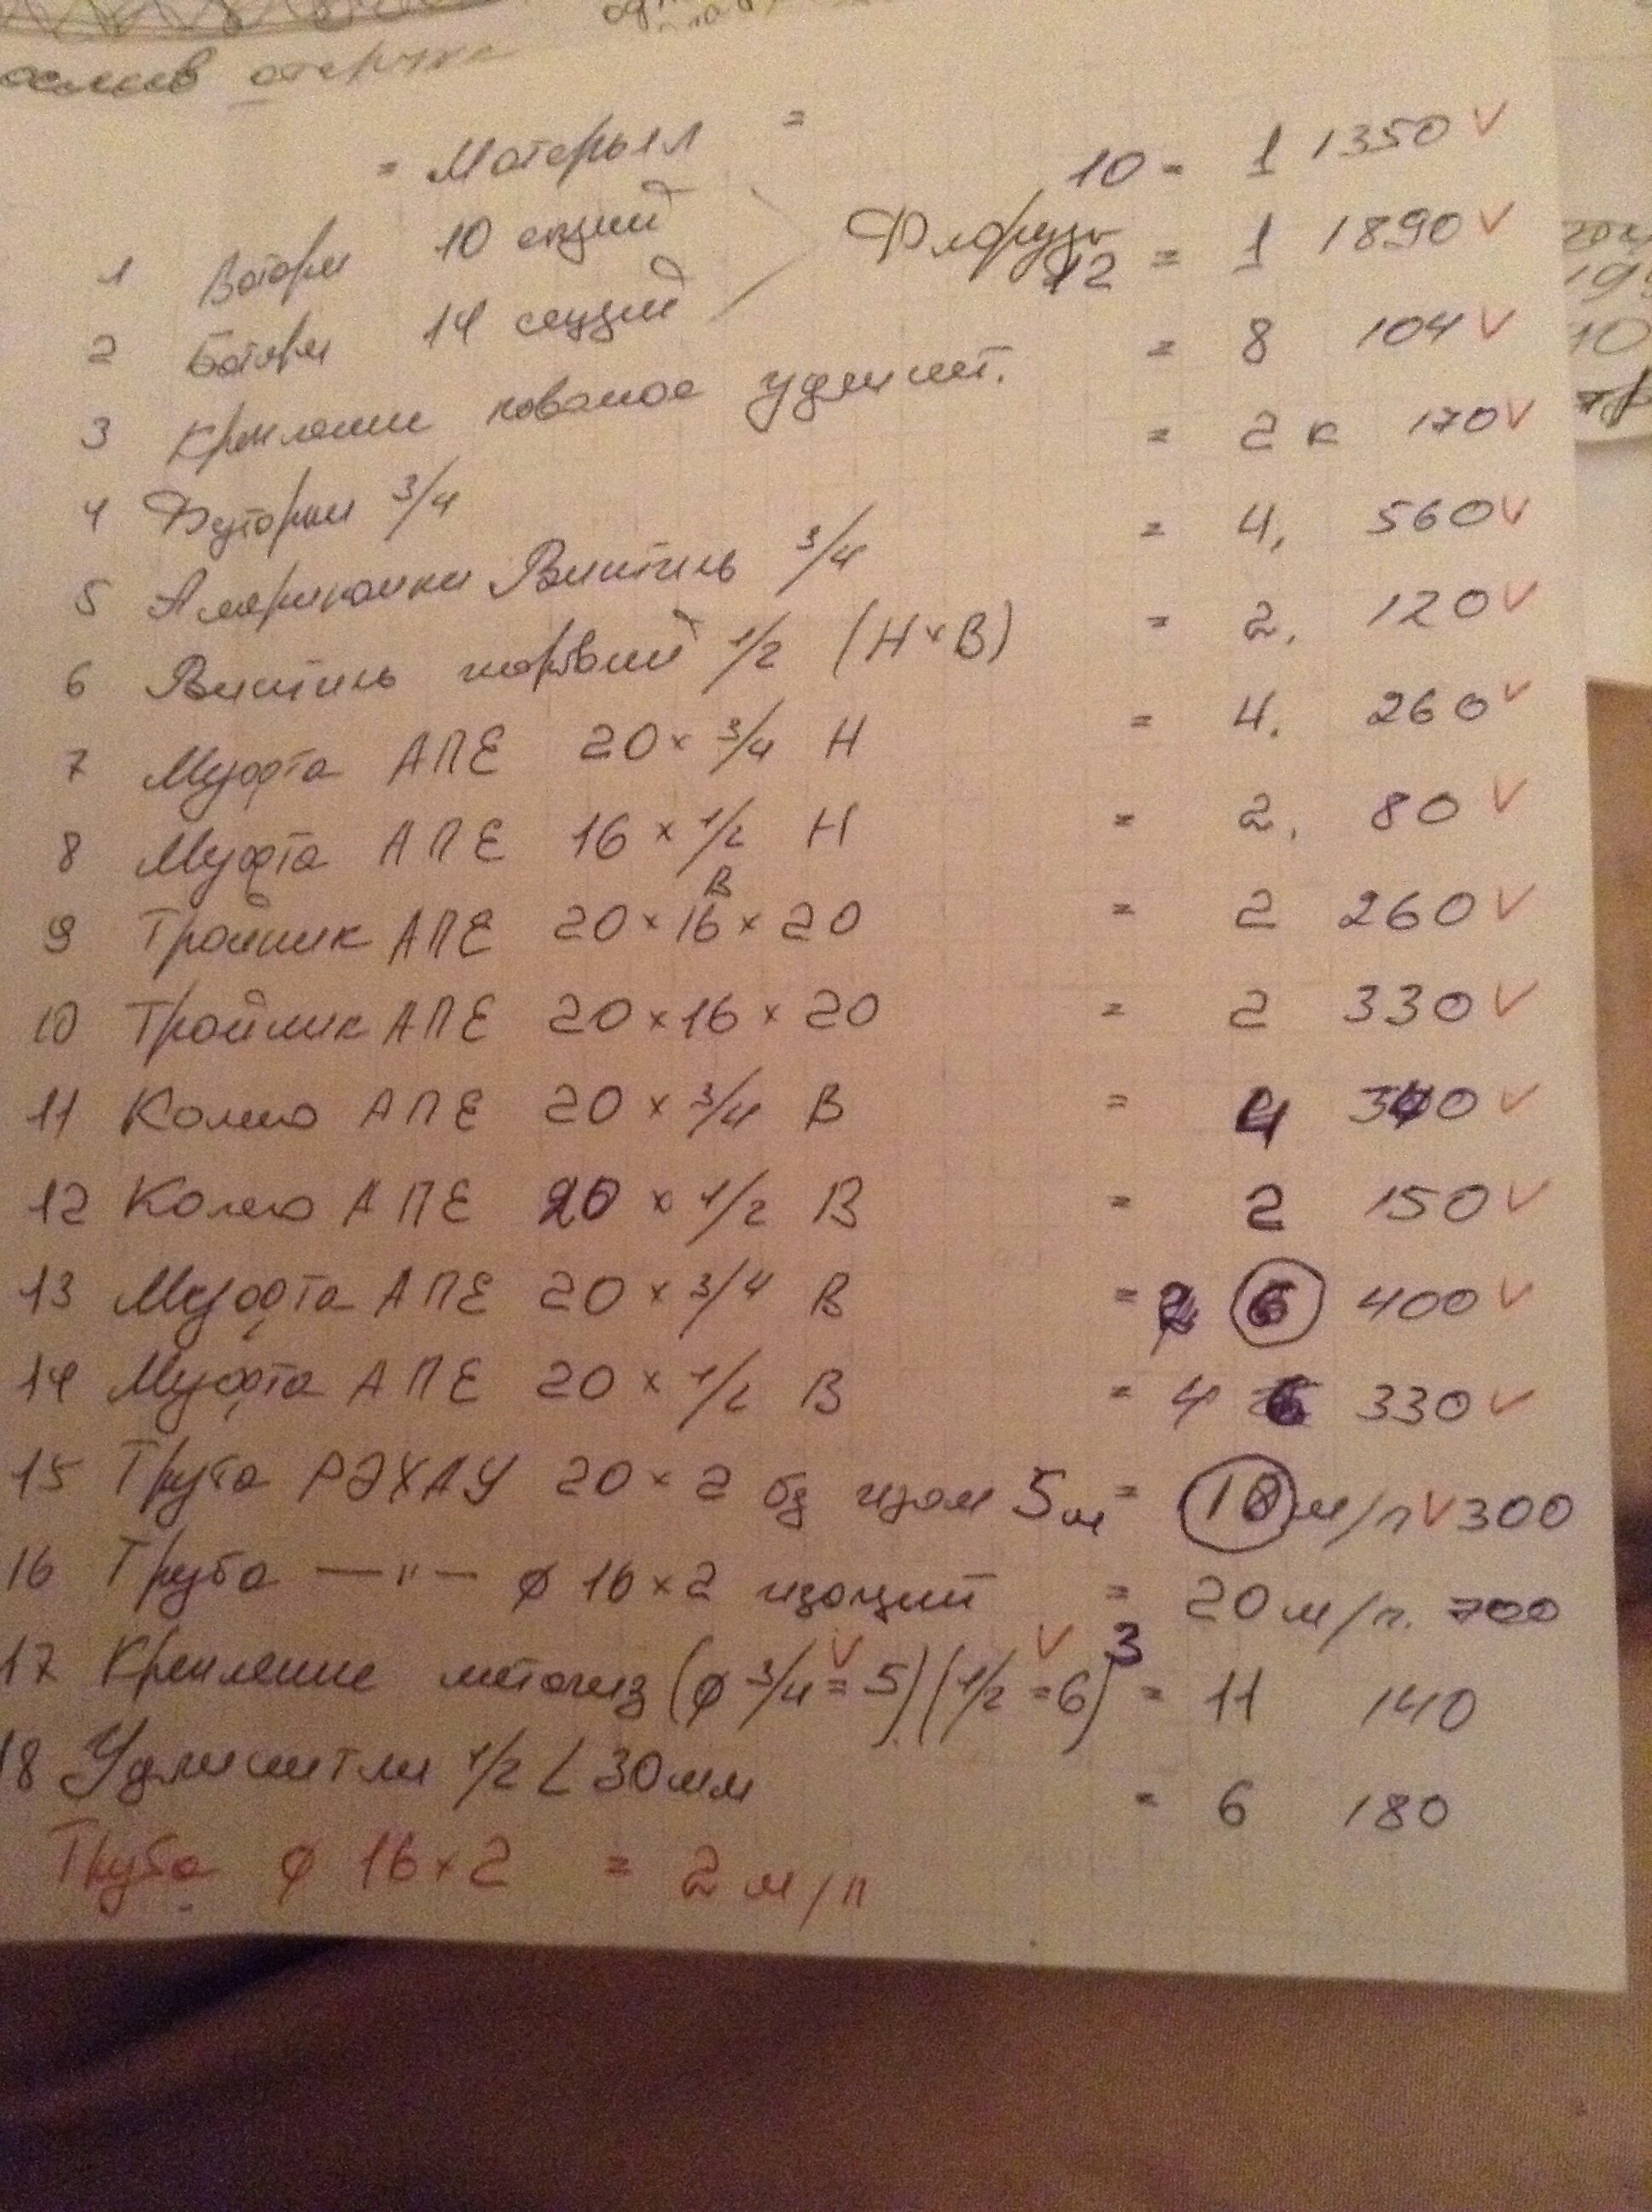 = Матерьял =
1 Батери 10 секций 10 = 1 1350 V
2 Батери 14 секций 12 = 1 1890 V
3 Крепление кованое удлинит. = 8 104 V
4 Футорки 3/4 = 2 к 170 V
5 Американки Винтиль 3/4 = 4, 560 V
6 Винтиль 1/2 (Н × В) = 2, 120 V
7 Муфта АПЕ 20 × 3/4 Н = 4. 260 V
8 Муфта АПЕ 16 × 1/2 Н = 2, 80 V
В
9 Тройник АПЕ 20 × 16 × 20 = 2 260 V
10 Тройник АПЕ 20 × 16 × 20 = 2 330 V
11 Колено АПЕ 20 × 3/4 В = 4 340 V
12 Колено АПЕ 20 × 1/2 В = 2 150 V
13 Муфта АПЕ 20 × 3/4 В = 6 400 V
14 Муфта АПЕ 20 × 1/2 В = 4 6 330 V
15 Труба РЭХАУ 20 × 2 5м = 18 м/п V 300
16 Труба —"— ф 16 × 2 = 20 м/п. 700
17 Крепление (ф 3/4 = 5) (1/2 = 6) 3 = 11 140
18 Удлинитли 1/2 L 30мм = 6 180
Труба ф 16 × 2 = 2 м/п